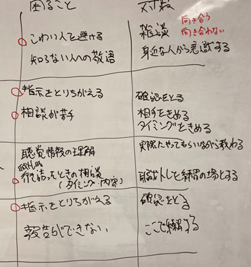 困ること
対数
こわい人を避ける
雑談
向き合う
向き合わない
知らない人への敬語
身近な人から意識する
指示をとりちがえる
確認をとる
相談が苦手
相手をきめる
タイミングをきめる
聴覚情報の理解
実際にやってもらいながら教わる
行き詰ったときの相談
(タイミング・内容)
職談トレを練習の場とする
指示をとりちがえる
確認をとる
報告ができない
ここで練習する